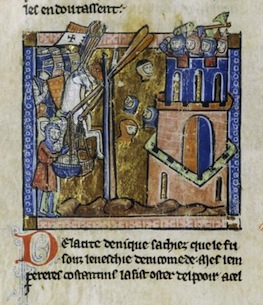 ies en doutassent:
De laute deniq̃ue sachiez que le fu
soiz leueschie de nicomede. Mes lem
pereres costantins la fist oster del pooir a cel